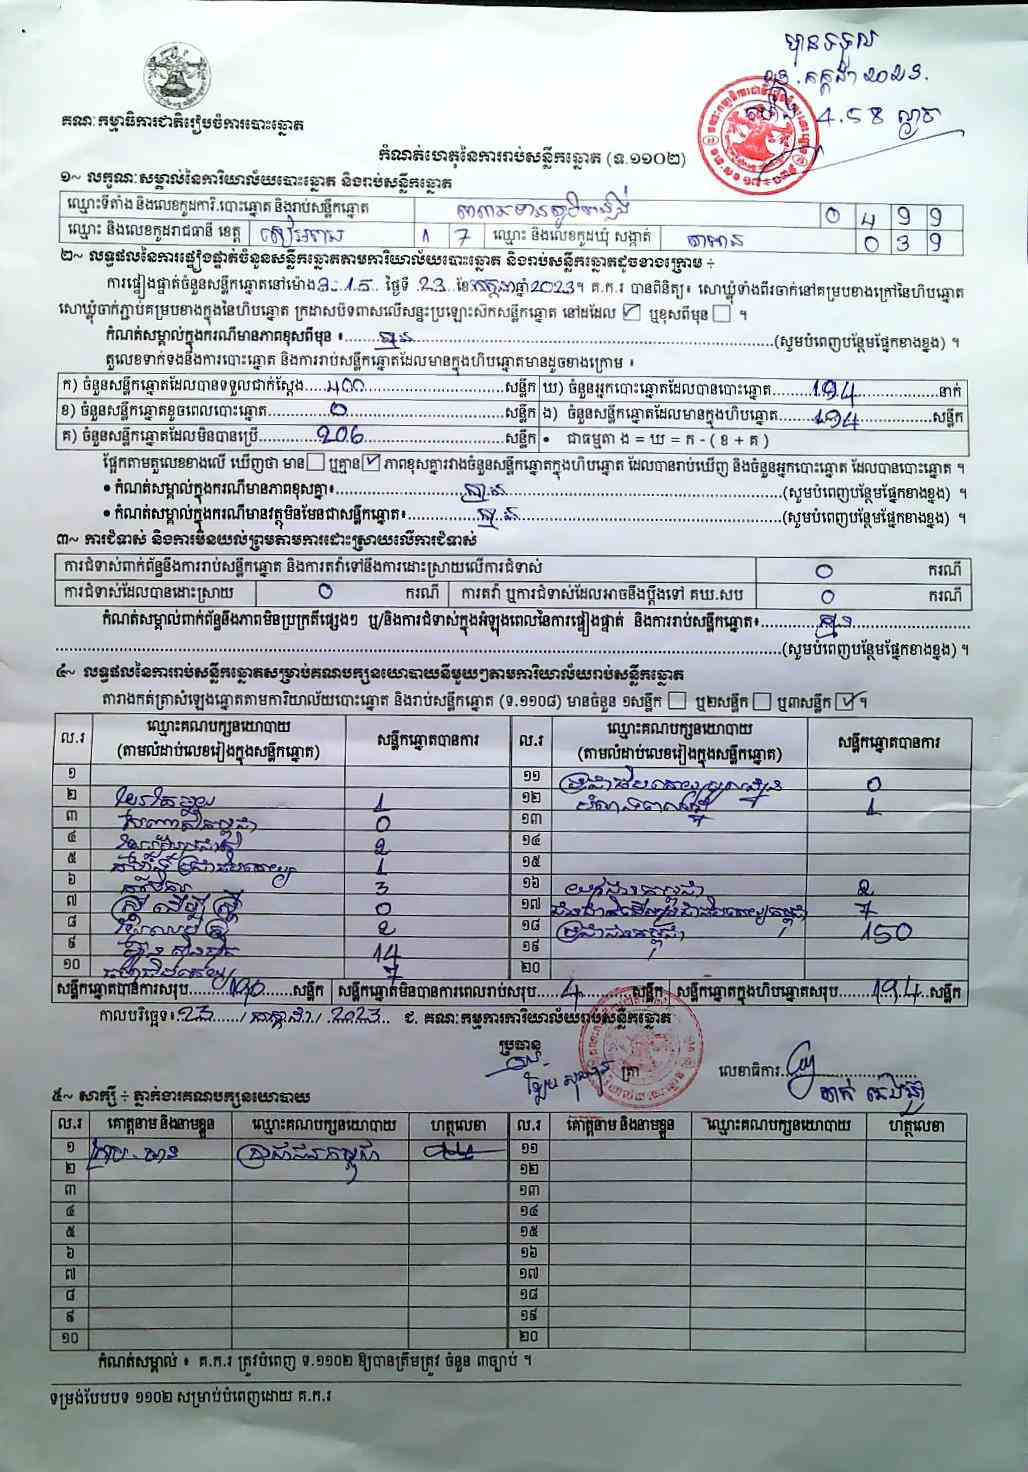 បានទទួល
២៣.កក្កដា ២០២៣.
ម៉ោង 4.58 ល្ងាច
គណៈកម្មាធិការជាតិរៀបចំការបោះឆ្នោត
កំណត់ហេតុនៃការរាប់សន្លឹកឆ្នោត (ទ.១១០២)
១~ លក្ខណៈសម្គាល់នៃការិយាល័យបោះឆ្នោត និងរាប់សន្លឹកឆ្នោត
ឈ្មោះទីតាំង និងលេខកូដការិ.បោះឆ្នោត និងរាប់សន្លឹកឆ្នោត 0 4 9 9
ឈ្មោះ និងលេខកូដរាជធានី ខេត្ត សៀមរាប 1 7 ឈ្មោះ និងលេខកូដឃុំ សង្កាត់ 0 3 9
២~ លទ្ធផលនៃការផ្ទៀងផ្ទាត់ចំនួនសន្លឹកឆ្នោតតាមការិយាល័យបោះឆ្នោត និងរាប់សន្លឹកឆ្នោតដូចខាងក្រោម ÷
ការផ្ទៀងផ្ទាត់ចំនួនសន្លឹកឆ្នោតនៅម៉ោង 3.15 ថ្ងៃទី 23 ខែកក្កដាឆ្នាំ2023។ គ.ក.រ បានពិនិត្យ៖ សោឃ្លុំទាំងពីរចាក់នៅគម្របខាងក្រៅនៃហិបឆ្នោត
សោឃ្លុំចាក់ភ្ជាប់គម្របខាងក្នុងនៃហិបឆ្នោត ក្រដាសបិទពាសលើសន្ទះប្រឡោះសិកសន្លឹកឆ្នោត នៅដដែល ☑ ឬខុសពីមុន ☐ ។
កំណត់សម្គាល់ក្នុងករណីមានភាពខុសពីមុន ៖ គ្មាន (សូមបំពេញបន្ថែមផ្នែកខាងខ្នង) ។
តួលេខទាក់ទងនឹងការបោះឆ្នោត និងការរាប់សន្លឹកឆ្នោតដែលមានក្នុងហិបឆ្នោតមានដូចខាងក្រោម ៖
ក) ចំនួនសន្លឹកឆ្នោតដែលបានទទួលជាក់ស្តែង 400 សន្លឹក ឃ) ចំនួនអ្នកបោះឆ្នោតដែលបានបោះឆ្នោត 194 នាក់
ខ) ចំនួនសន្លឹកឆ្នោតខូចពេលបោះឆ្នោត 0 សន្លឹក ង) ចំនួនសន្លឹកឆ្នោតដែលមានក្នុងហិបឆ្នោត 194 សន្លឹក
គ) ចំនួនសន្លឹកឆ្នោតដែលមិនបានប្រើ 206 សន្លឹក • ជាធម្មតា ង = ឃ = ក - ( ខ + គ )
ផ្អែកតាមតួលេខខាងលើ ឃើញថា មាន ☐ ឬគ្មាន ☑ ភាពខុសគ្នារវាងចំនួនសន្លឹកឆ្នោតក្នុងហិបឆ្នោត ដែលបានរាប់ឃើញ និងចំនួនអ្នកបោះឆ្នោត ដែលបានបោះឆ្នោត ។
• កំណត់សម្គាល់ក្នុងករណីមានភាពខុសគ្នា៖ គ្មាន (សូមបំពេញបន្ថែមផ្នែកខាងខ្នង) ។
• កំណត់សម្គាល់ក្នុងករណីមានវត្ថុមិនមែនជាសន្លឹកឆ្នោត៖ គ្មាន (សូមបំពេញបន្ថែមផ្នែកខាងខ្នង) ។
៣~ ការជំទាស់ និងការមិនយល់ព្រមតាមការដោះស្រាយលើការជំទាស់
ការជំទាស់ពាក់ព័ន្ធនឹងការរាប់សន្លឹកឆ្នោត និងការតវ៉ាទៅនឹងការដោះស្រាយលើការជំទាស់ 0 ករណី
ការជំទាស់ដែលបានដោះស្រាយ 0 ករណី ការតវ៉ា ឬការជំទាស់ដែលអាចនឹងប្តឹងទៅ គឃ.សប 0 ករណី
កំណត់សម្គាល់ពាក់ព័ន្ធនឹងភាពមិនប្រក្រតីផ្សេងៗ ឬ/និងការជំទាស់ក្នុងអំឡុងពេលនៃការផ្ទៀងផ្ទាត់ និងការរាប់សន្លឹកឆ្នោត៖ គ្មាន
(សូមបំពេញបន្ថែមផ្នែកខាងខ្នង) ។
៤~ លទ្ធផលនៃការរាប់សន្លឹកឆ្នោតសម្រាប់គណបក្សនយោបាយនីមួយៗតាមការិយាល័យរាប់សន្លឹកឆ្នោត
តារាងកត់ត្រាសំឡេងឆ្នោតតាមការិយាល័យបោះឆ្នោត និងរាប់សន្លឹកឆ្នោត (ទ.១១០៨) មានចំនួន ១សន្លឹក ☐ ឬ២សន្លឹក ☐ ឬ៣សន្លឹក ☑ ។
ល.រ ឈ្មោះគណបក្សនយោបាយ (តាមលំដាប់លេខរៀងក្នុងសន្លឹកឆ្នោត) សន្លឹកឆ្នោតបានការ ល.រ ឈ្មោះគណបក្សនយោបាយ (តាមលំដាប់លេខរៀងក្នុងសន្លឹកឆ្នោត) សន្លឹកឆ្នោតបានការ
១ ១១ 0
២ 1 ១២ 1
៣ 0 ១៣
៤ 2 ១៤
៥ 1 ១៥
៦ 3 ១៦ យុវជនកម្ពុជា 2
៧ ស្ត្រី ដើម្បី ស្ត្រី 0 ១៧ 7
៨ 2 ១៨ ប្រជាជនកម្ពុជា 150
៩ 14 ១៩
១០ 7 ២០
សន្លឹកឆ្នោតបានការសរុប 190 សន្លឹក សន្លឹកឆ្នោតមិនបានការពេលរាប់សរុប 4 សន្លឹក សន្លឹកឆ្នោតក្នុងហិបឆ្នោតសរុប 194 សន្លឹក
កាលបរិច្ឆេទ៖ 23 / កក្កដា / 2023 ជ. គណៈកម្មការការិយាល័យរាប់សន្លឹកឆ្នោត
ប្រធាន
ត្រា លេខាធិការ
៥~ សាក្សី ÷ ភ្នាក់ងារគណបក្សនយោបាយ
ល.រ គោត្តនាម និងនាមខ្លួន ឈ្មោះគណបក្សនយោបាយ ហត្ថលេខា ល.រ គោត្តនាម និងនាមខ្លួន ឈ្មោះគណបក្សនយោបាយ ហត្ថលេខា
១ ប្រជាជនកម្ពុជា ១១
២ ១២
៣ ១៣
៤ ១៤
៥ ១៥
៦ ១៦
៧ ១៧
៨ ១៨
៩ ១៩
១០ ២០
កំណត់សម្គាល់ ៖ គ.ក.រ ត្រូវបំពេញ ទ.១១០២ ឱ្យបានត្រឹមត្រូវ ចំនួន ៣ច្បាប់ ។
ទម្រង់បែបបទ ១១០២ សម្រាប់បំពេញដោយ គ.ក.រ